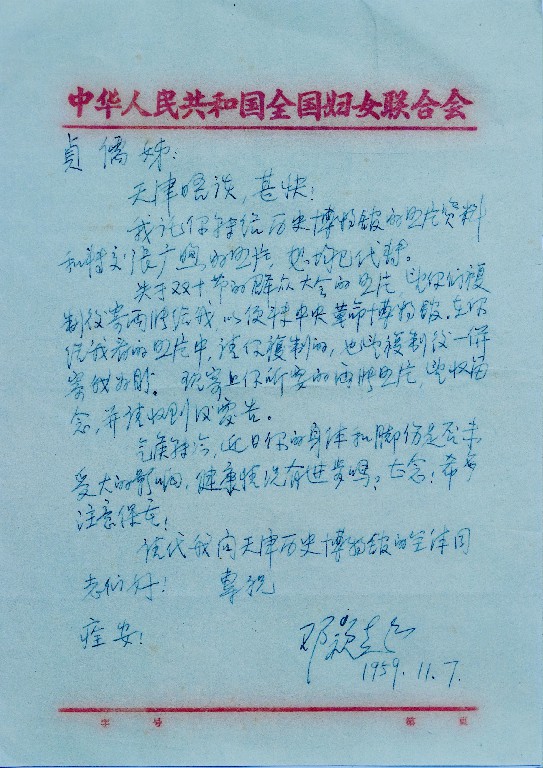 中华人民共和国全国妇女联合会
贞儒姊：
天津晤谈，甚快！
我托你转给历史博物馆的照片资料
和转交张广 的照片，想均已代转。
关于双十节的群众大会的照片，望你们複
制后寄两张给我，以便转中央革命博物馆，在你
给我看的照片中，请你複制的，也望複制后一併
寄我为盼。现寄上你所要的两张照片，望收留
念，并请收到后覆告。
气候转冷，近日你的身体和脚伤是否未
受大的影响，健康情况有进步吗？念念！希多
注意保重！
请代我向天津历史博物馆的全体同
志们好！ 专祝
痊安！
邓颖超
1959.11.7.
字 号 第 页